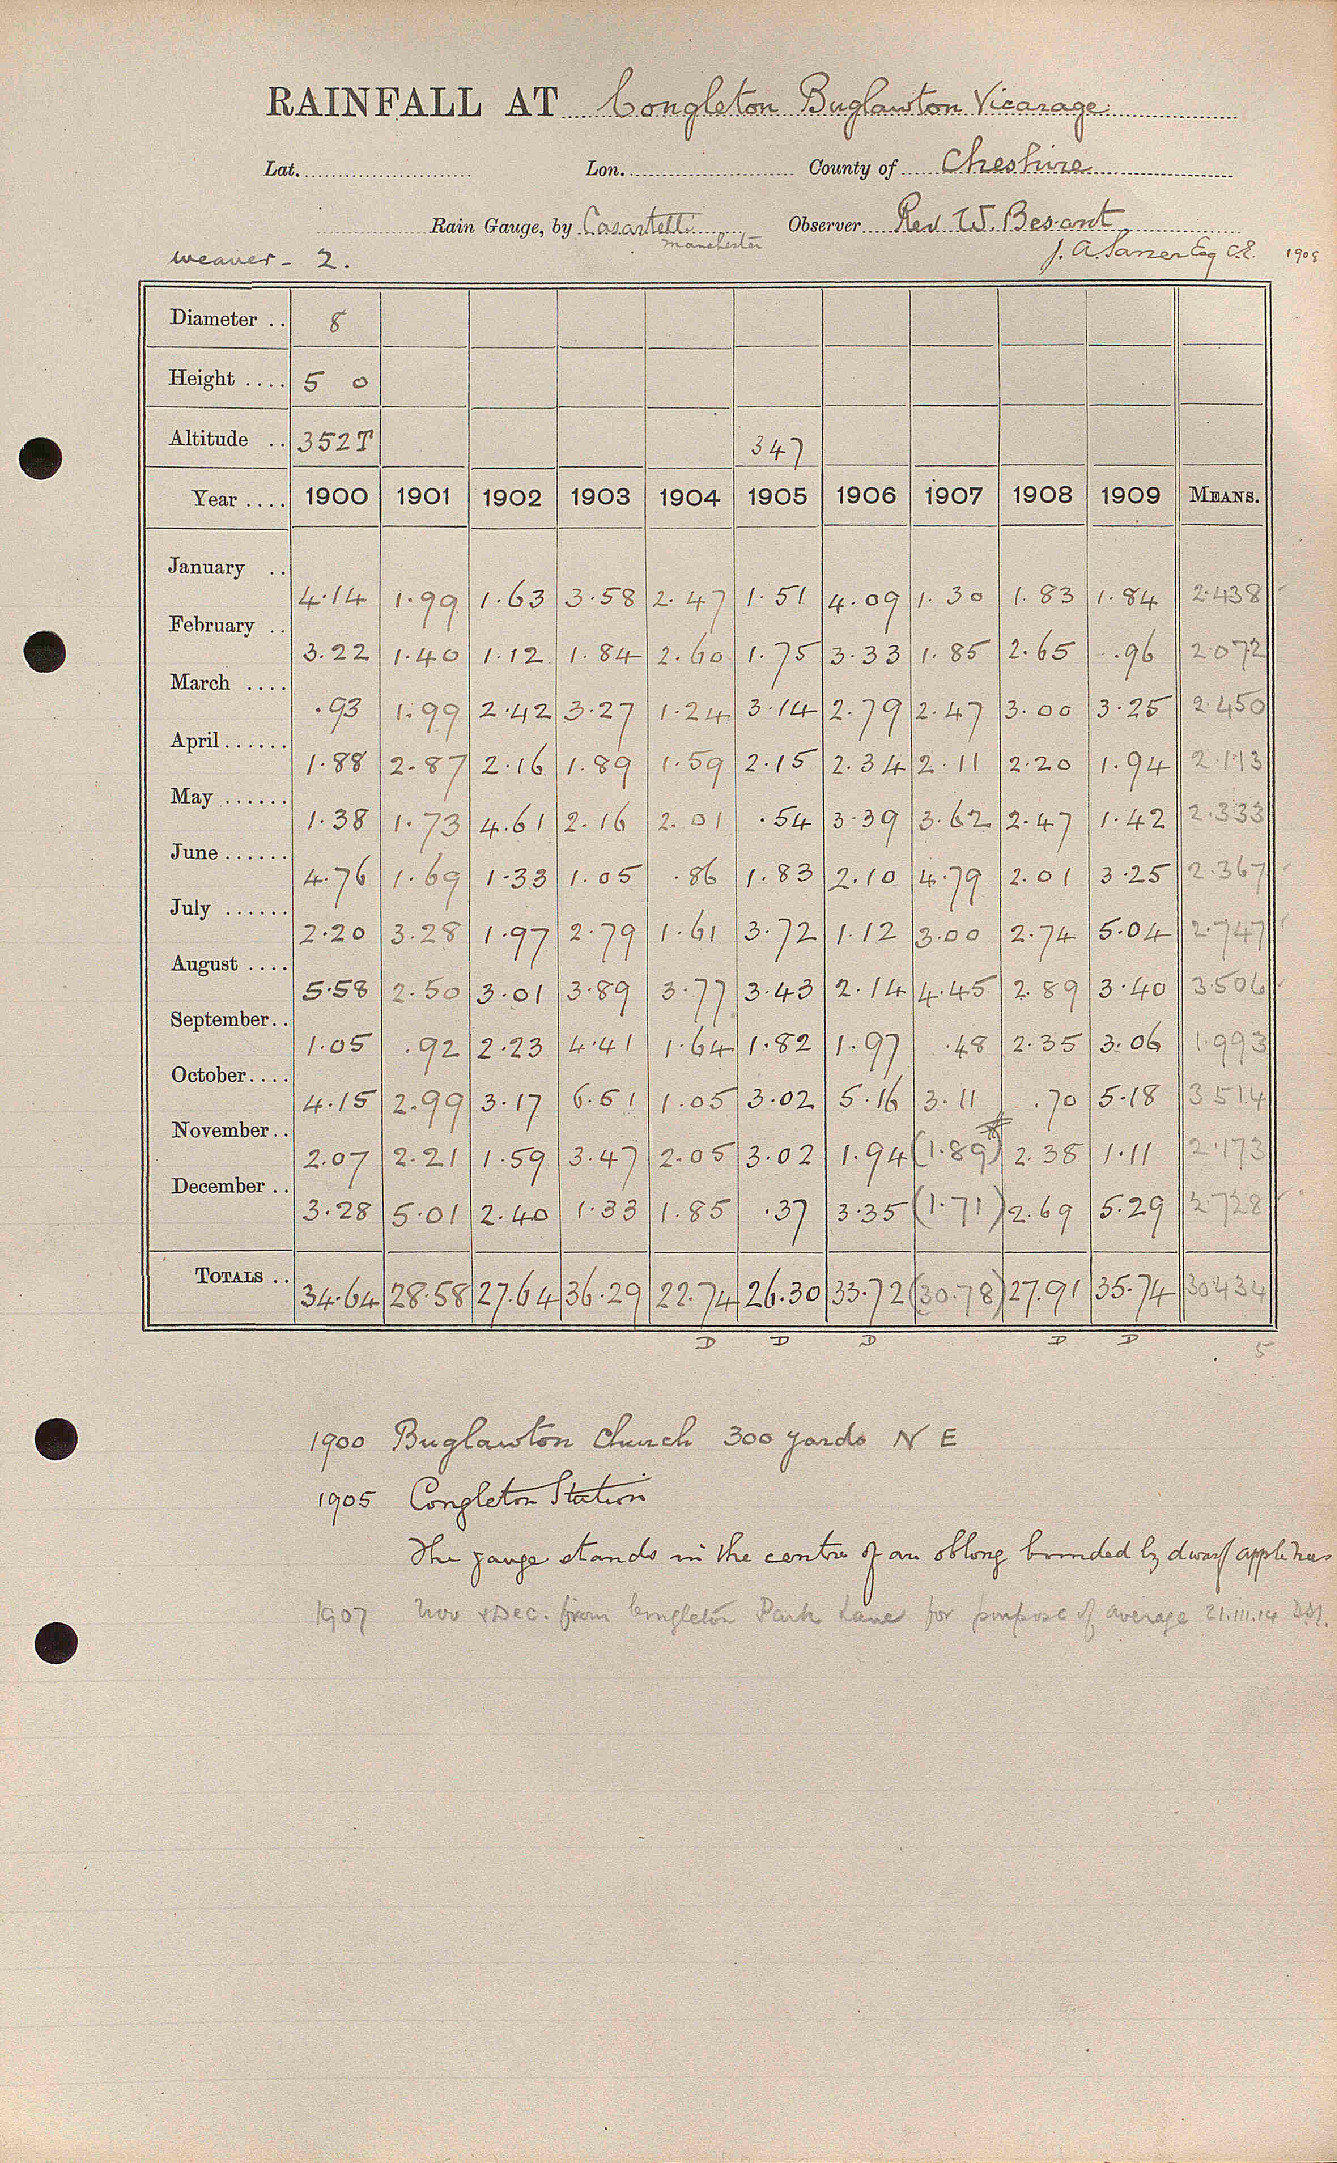 RAINFALL AT Congleton Buglawton Vicarage
Lat. Lon. County of Cheshire
Rain Gauge, by Casartelli Observer Rev W. Besant
Manchester
Weaver - 2. J. A. Saner Esq C.E. 1905
Diameter .. 8
Height .... 5 0
Altitude .. 352T 347
Year .... 1900 1901 1902 1903 1904 1905 1906 1907 1908 1909 MEANS.
January .. 4.14 1.99 1.63 3.58 2.47 1.51 4.09 1.30 1.83 1.84 2.438
February .. 3.22 1.40 1.12 1.84 2.60 1.75 3.33 1.85 2.65 .96 2.072
March .... .93 1.99 2.42 3.27 1.24 3.14 2.79 2.47 3.00 3.25 2.450
April ...... 1.88 2.87 2.16 1.89 1.59 2.15 2.34 2.11 2.20 1.94 2.113
May ...... 1.38 1.73 4.61 2.16 2.01 .54 3.39 3.62 2.47 1.42 2.333
June ...... 4.76 1.69 1.33 1.05 .86 1.83 2.10 4.79 2.01 3.25 2.367
July ...... 2.20 3.28 1.97 2.79 1.61 3.72 1.12 3.00 2.74 5.04 2.747
August .... 5.58 2.50 3.01 3.89 3.77 3.43 2.14 4.45 2.89 3.40 3.506
September.. 1.05 .92 2.23 4.41 1.64 1.82 1.97 .48 2.35 3.06 1.993
October.... 4.15 2.99 3.17 6.61 1.05 3.02 5.16 3.11 .70 5.18 3.514
November.. 2.07 2.21 1.59 3.47 2.05 3.02 1.94 (1.89)* 2.38 1.11 2.173
December .. 3.28 5.01 2.40 1.33 1.85 .37 3.35 (1.71) 2.69 5.29 2.728
TOTALS .. 34.64 28.58 27.64 36.29 22.74 26.30 33.72 (30.78) 27.91 35.74 30.434
D D D D D 5
1900 Buglawton Church 300 yards N E
1905 Congleton Station
The gauge stands in the centre of an oblong bounded by dwarf apple trees
1907 Nov & Dec. from Congleton Park Lane for purpose of average 21.III.14